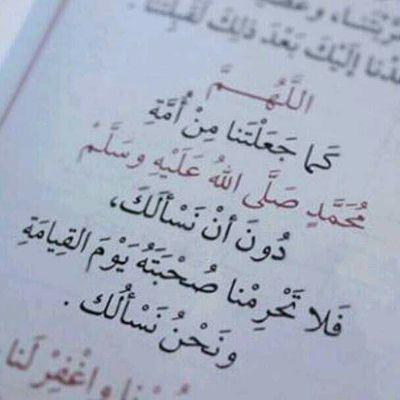 عُدْنا إِلَيْكَ بَعْدَ ذلِكَ لَقَبِلْتَنا .
اللَّهُـــمَّ
كَما جَعَلْتَنا مِنْ أُمَّةِ
مُحَمَّدٍ صَلَّى اللهُ عَلَيْهِ وسَلَّمْ
دُونَ أنْ نَسْألَكَ،
فَلا تَحْرِمْنا صُحْبَتَهُ يَوْمَ القِيامَةِ
ونَحْنُ نَسْألُك .
واغْفِرْ لَنا